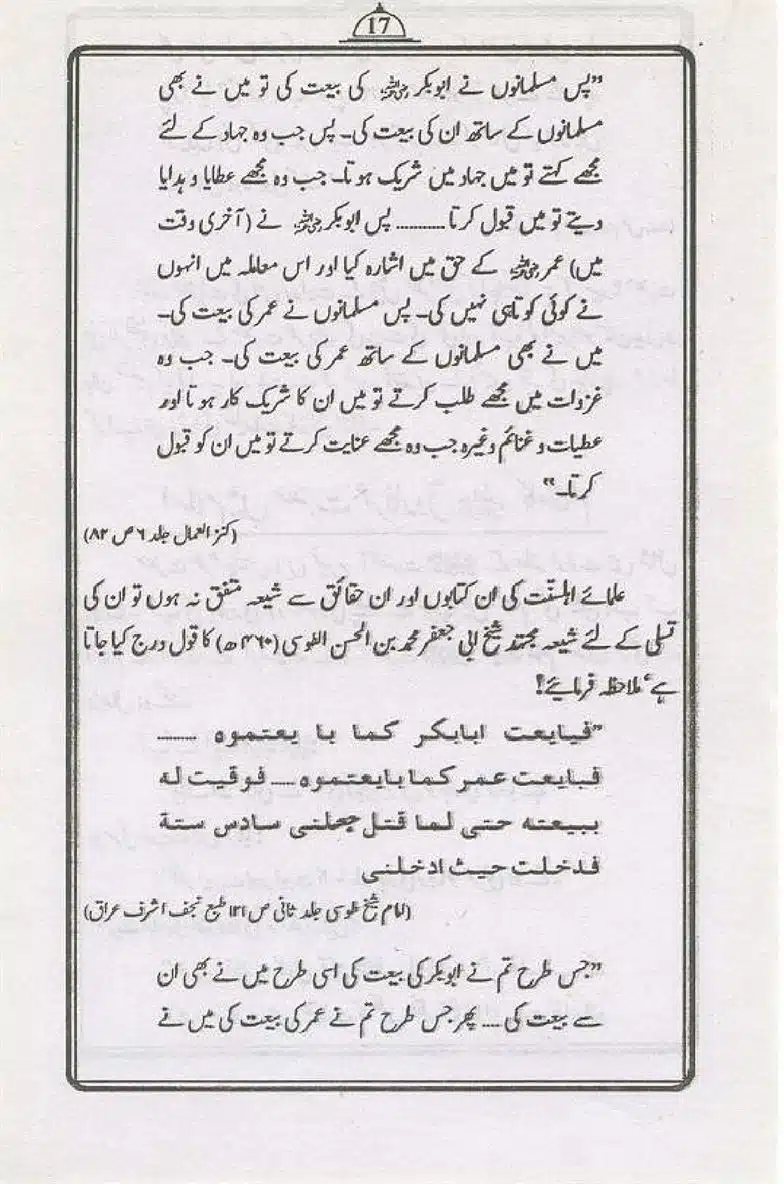 17
”پس مسلمانوں نے ابوبکر رضی اللہ عنہ کی بیعت کی تو میں نے بھی
مسلمانوں کے ساتھ ان کی بیعت کی۔ پس جب وہ جہاد کے لئے
مجھے کہتے تو میں جہاد میں شریک ہوتا۔ جب وہ مجھے عطایا و ہدایا
دیتے تو میں قبول کرتا .......... پس ابوبکر رضی اللہ عنہ نے (آخری وقت
میں) عمر رضی اللہ عنہ کے حق میں اشارہ کیا اور اس معاملہ میں انہوں
نے کوئی کوتاہی نہیں کی۔ پس مسلمانوں نے عمر کی بیعت کی۔
میں نے بھی مسلمانوں کے ساتھ عمر کی بیعت کی۔ جب وہ
غزوات میں مجھے طلب کرتے تو میں ان کا شریک کار ہوتا اور
عطیات و غنائم وغیرہ جب وہ مجھے عنایت کرتے تو میں ان کو قبول
کرتا۔“
(کنز العمال جلد ۶ ص ۸۲)
علمائے اہلسنّت کی ان کتابوں اور ان حقائق سے شیعہ متفق نہ ہوں تو ان کی
تسلی کے لئے شیعہ مجتہد شیخ ابی جعفر محمد بن الحسن الطوسی (۴۶۰ھ) کا قول درج کیا جاتا
ہے‘ ملاحظہ فرمائیے!
”فبایعت ابابکر کما با یعتموہ ........
فبایعت عمر کما بایعتموہ .... فوفیت لہ
ببیعتہ حتی لما قتل جعلنی سادس ستة
فدخلت حیث ادخلنی
(امام شیخ طوسی جلد ثانی ص ۱۲۱ طبع نجف اشرف عراق)
”جس طرح تم نے ابوبکر کی بیعت کی اسی طرح میں نے بھی ان
سے بیعت کی .... پھر جس طرح تم نے عمر کی بیعت کی میں نے